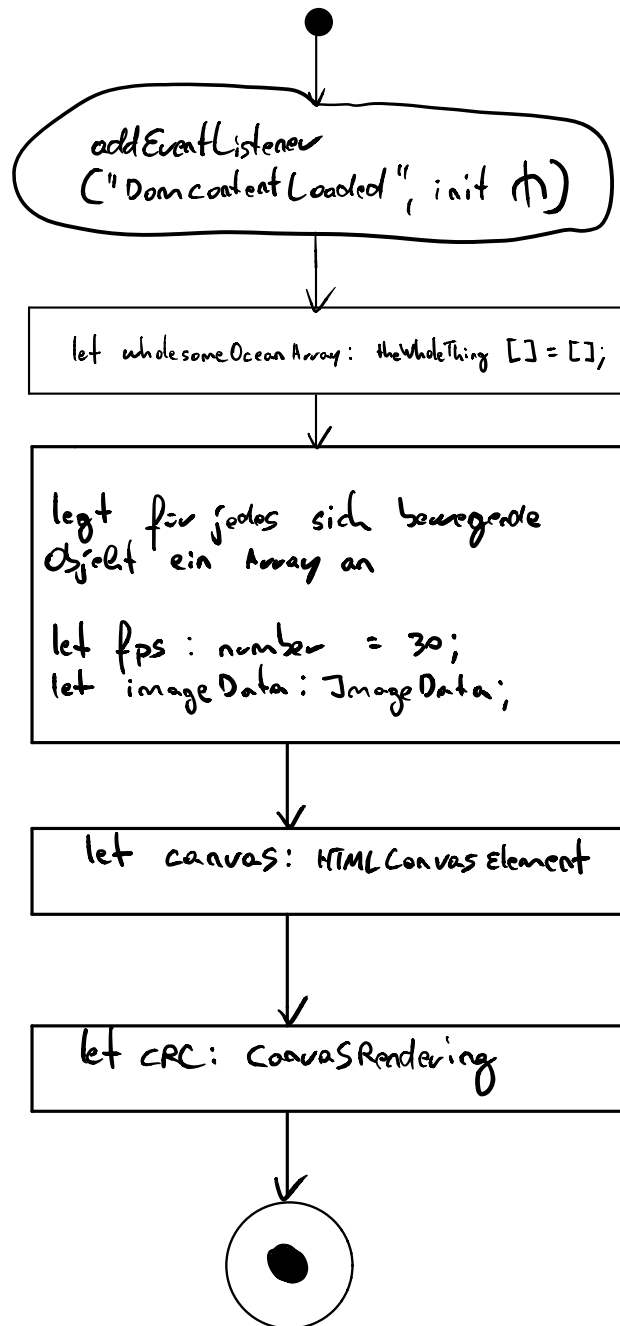 addEventListener
("DomcontentLoaded", init )
let wholesomeOceanArray: theWholeThing [] = [];
legt für jedes sich bewegende
Objekt ein Array an
let fps : number = 30;
let imageData: ImageData;
let canvas: HTMLCanvasElement
let CRC: CanvasRendering